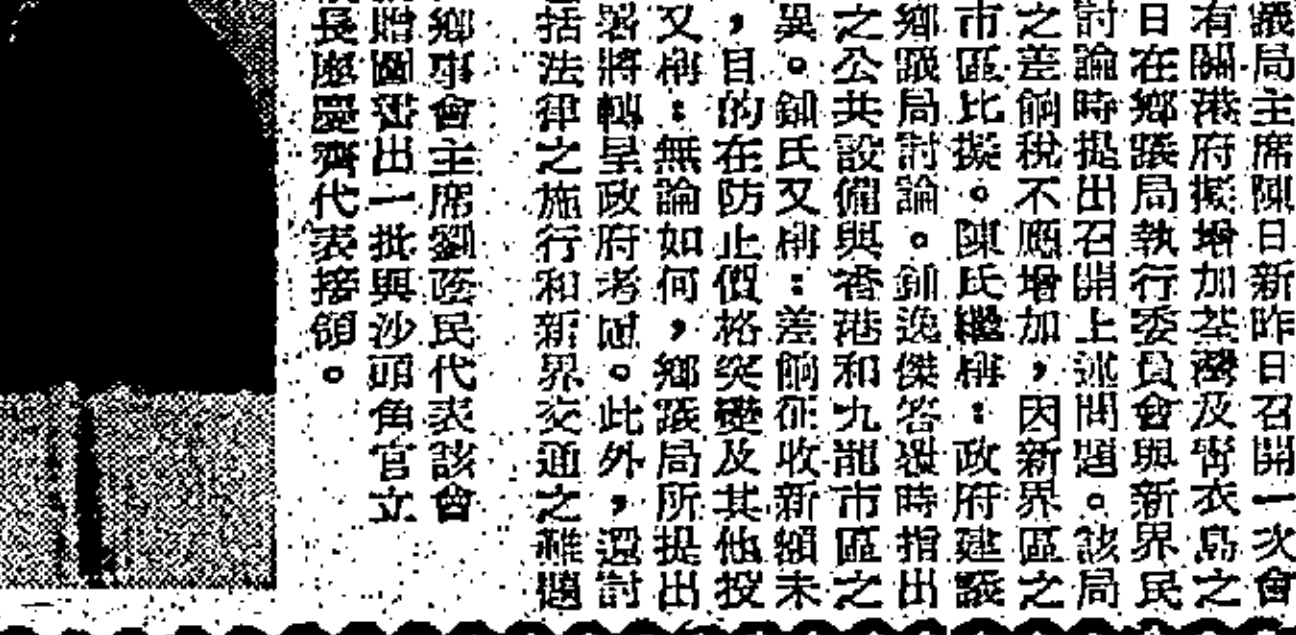 議局主席陳日新昨日召開一次會
有關港府擬增加荃灣及靑衣島之
日在鄉議局執行委員會與新界民
討論時提出召開上述問題。該局
之差餉稅不應增加，因新界區之
市區比擬。陳氏繼稱：政府建議
鄉議局討論。鍾逸傑答覆時指出
之公共設備與香港和九龍市區之
異。鍾氏又稱：差餉征收新額未
，目的在防止價格突變及其他投
又稱：無論如何，鄉議局所提出
將轉呈政府考慮。此外，還討
括法律之施行和新界交通之難題
鄉事會主席劉蔭民代表該會
贈圖書出一批與沙頭角官立
長慶齊代表接領。